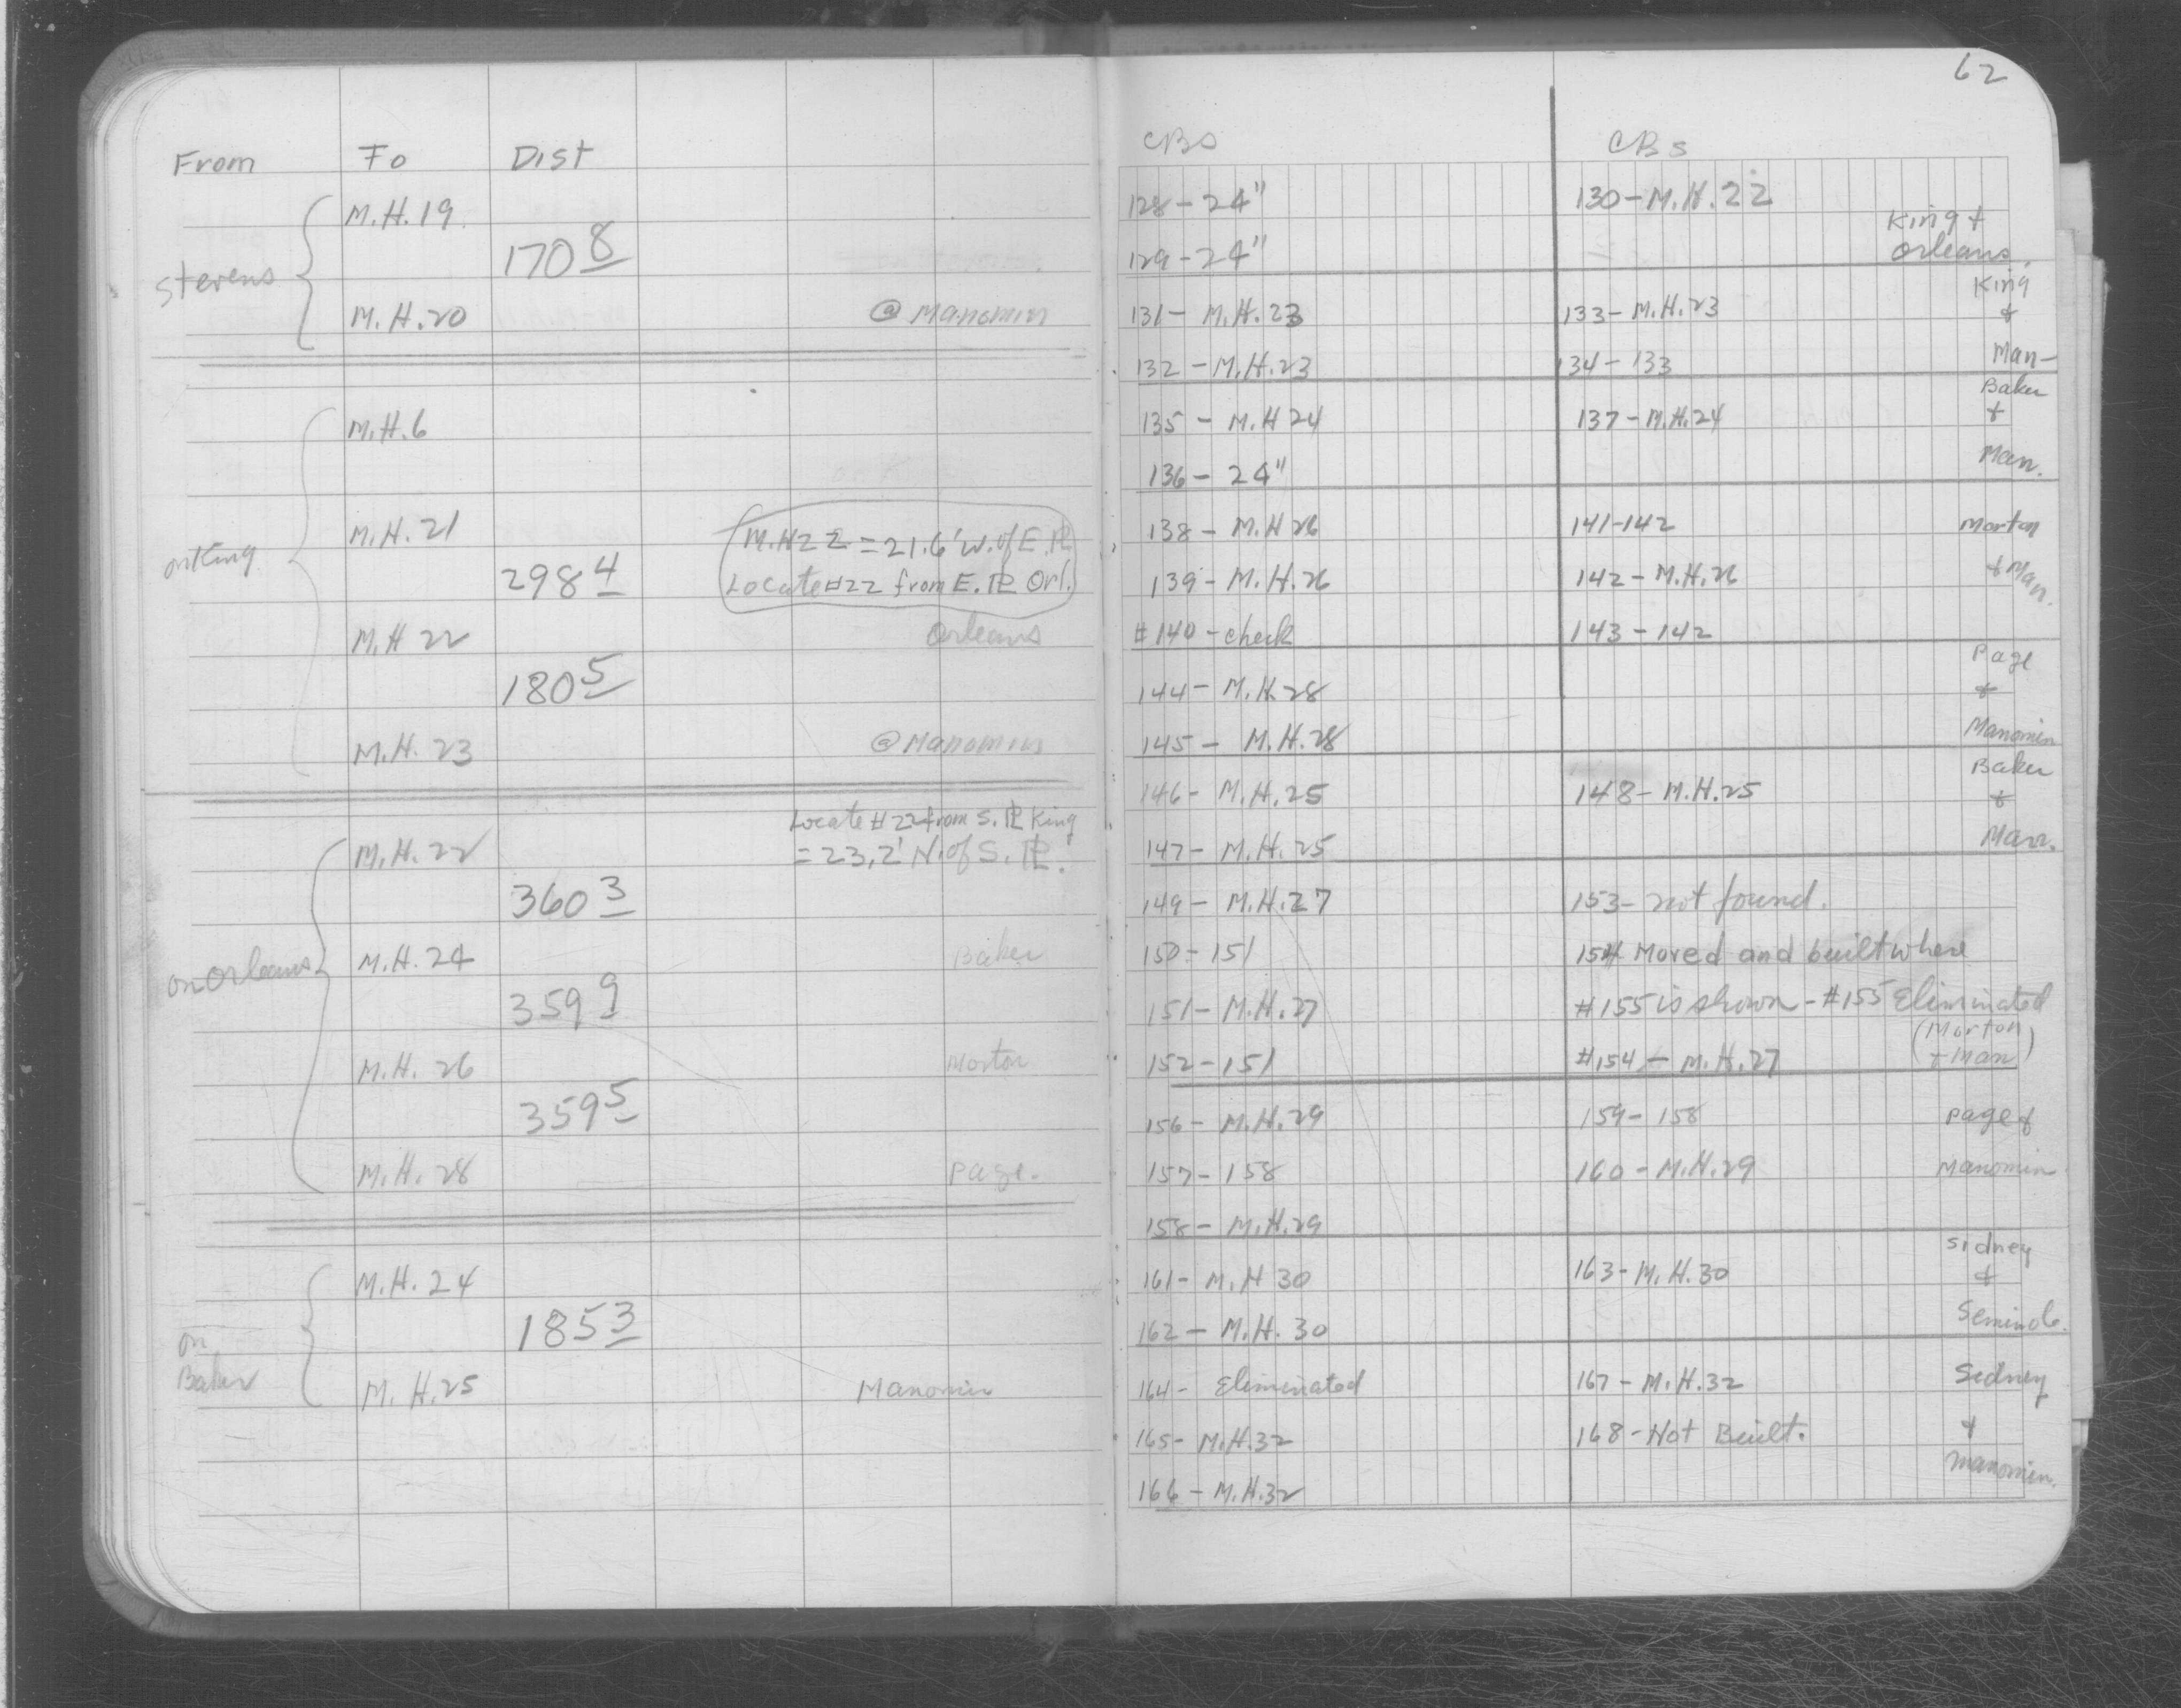 62
From To Dist
Stevens M.H.19
170 8
M.H.20 @ Manomin
on King M.H.6
M.H.21 M.H22 = 21.6' W. of E. PL
298 4 Locate #22 from E. PL Orl.
M.H 22 Orleans
180 5
M.H. 23 @ Manomin
Locate # 22 from S. PL King
M.H. 22 = 23.2' N. of S. PL.
360 3
on Orleans M.H. 24 Baker
359 9
M.H. 26 Morton
359 5
M.H. 28 Page.
M.H. 24
185 3
on
Baker M.H.25 Manomin
CBs CBs
128 - 24" 130 - M.H. 22 King +
129 - 24" Orleans.
131 - M.H. 23 133 - M.H. 23 King +
132 - M.H. 23 134 - 133 Man-
135 - M.H 24 137 - M.H. 24 Baker +
136 - 24" Man.
138 - M.H 26 141-142 Morton
139 - M.H. 26 142 - M.H. 26 + Man.
#140 - check 143 - 142
144 - M.H. 28 Page +
145 - M.H. 28 Manomin
146 - M.H. 25 148 - M.H. 25 Baker +
147 - M.H. 25 Man.
149 - M.H. 27 153 - not found.
150 - 151 154 Moved and built where
151 - M.H. 27 #155 is shown - #155 Eliminated
152 - 151 #154 - M.H. 27 (Morton + Man)
156 - M.H. 29 159 - 158 Page +
157 - 158 160 - M.H. 29 Manomin
158 - M.H. 29
161 - M.H 30 163 - M.H. 30 Sidney +
162 - M.H. 30 Seminole.
164 - Eliminated 167 - M.H. 32 Sidney
165 - M.H. 32 168 - Not Built. +
166 - M.H. 32 Manomin.